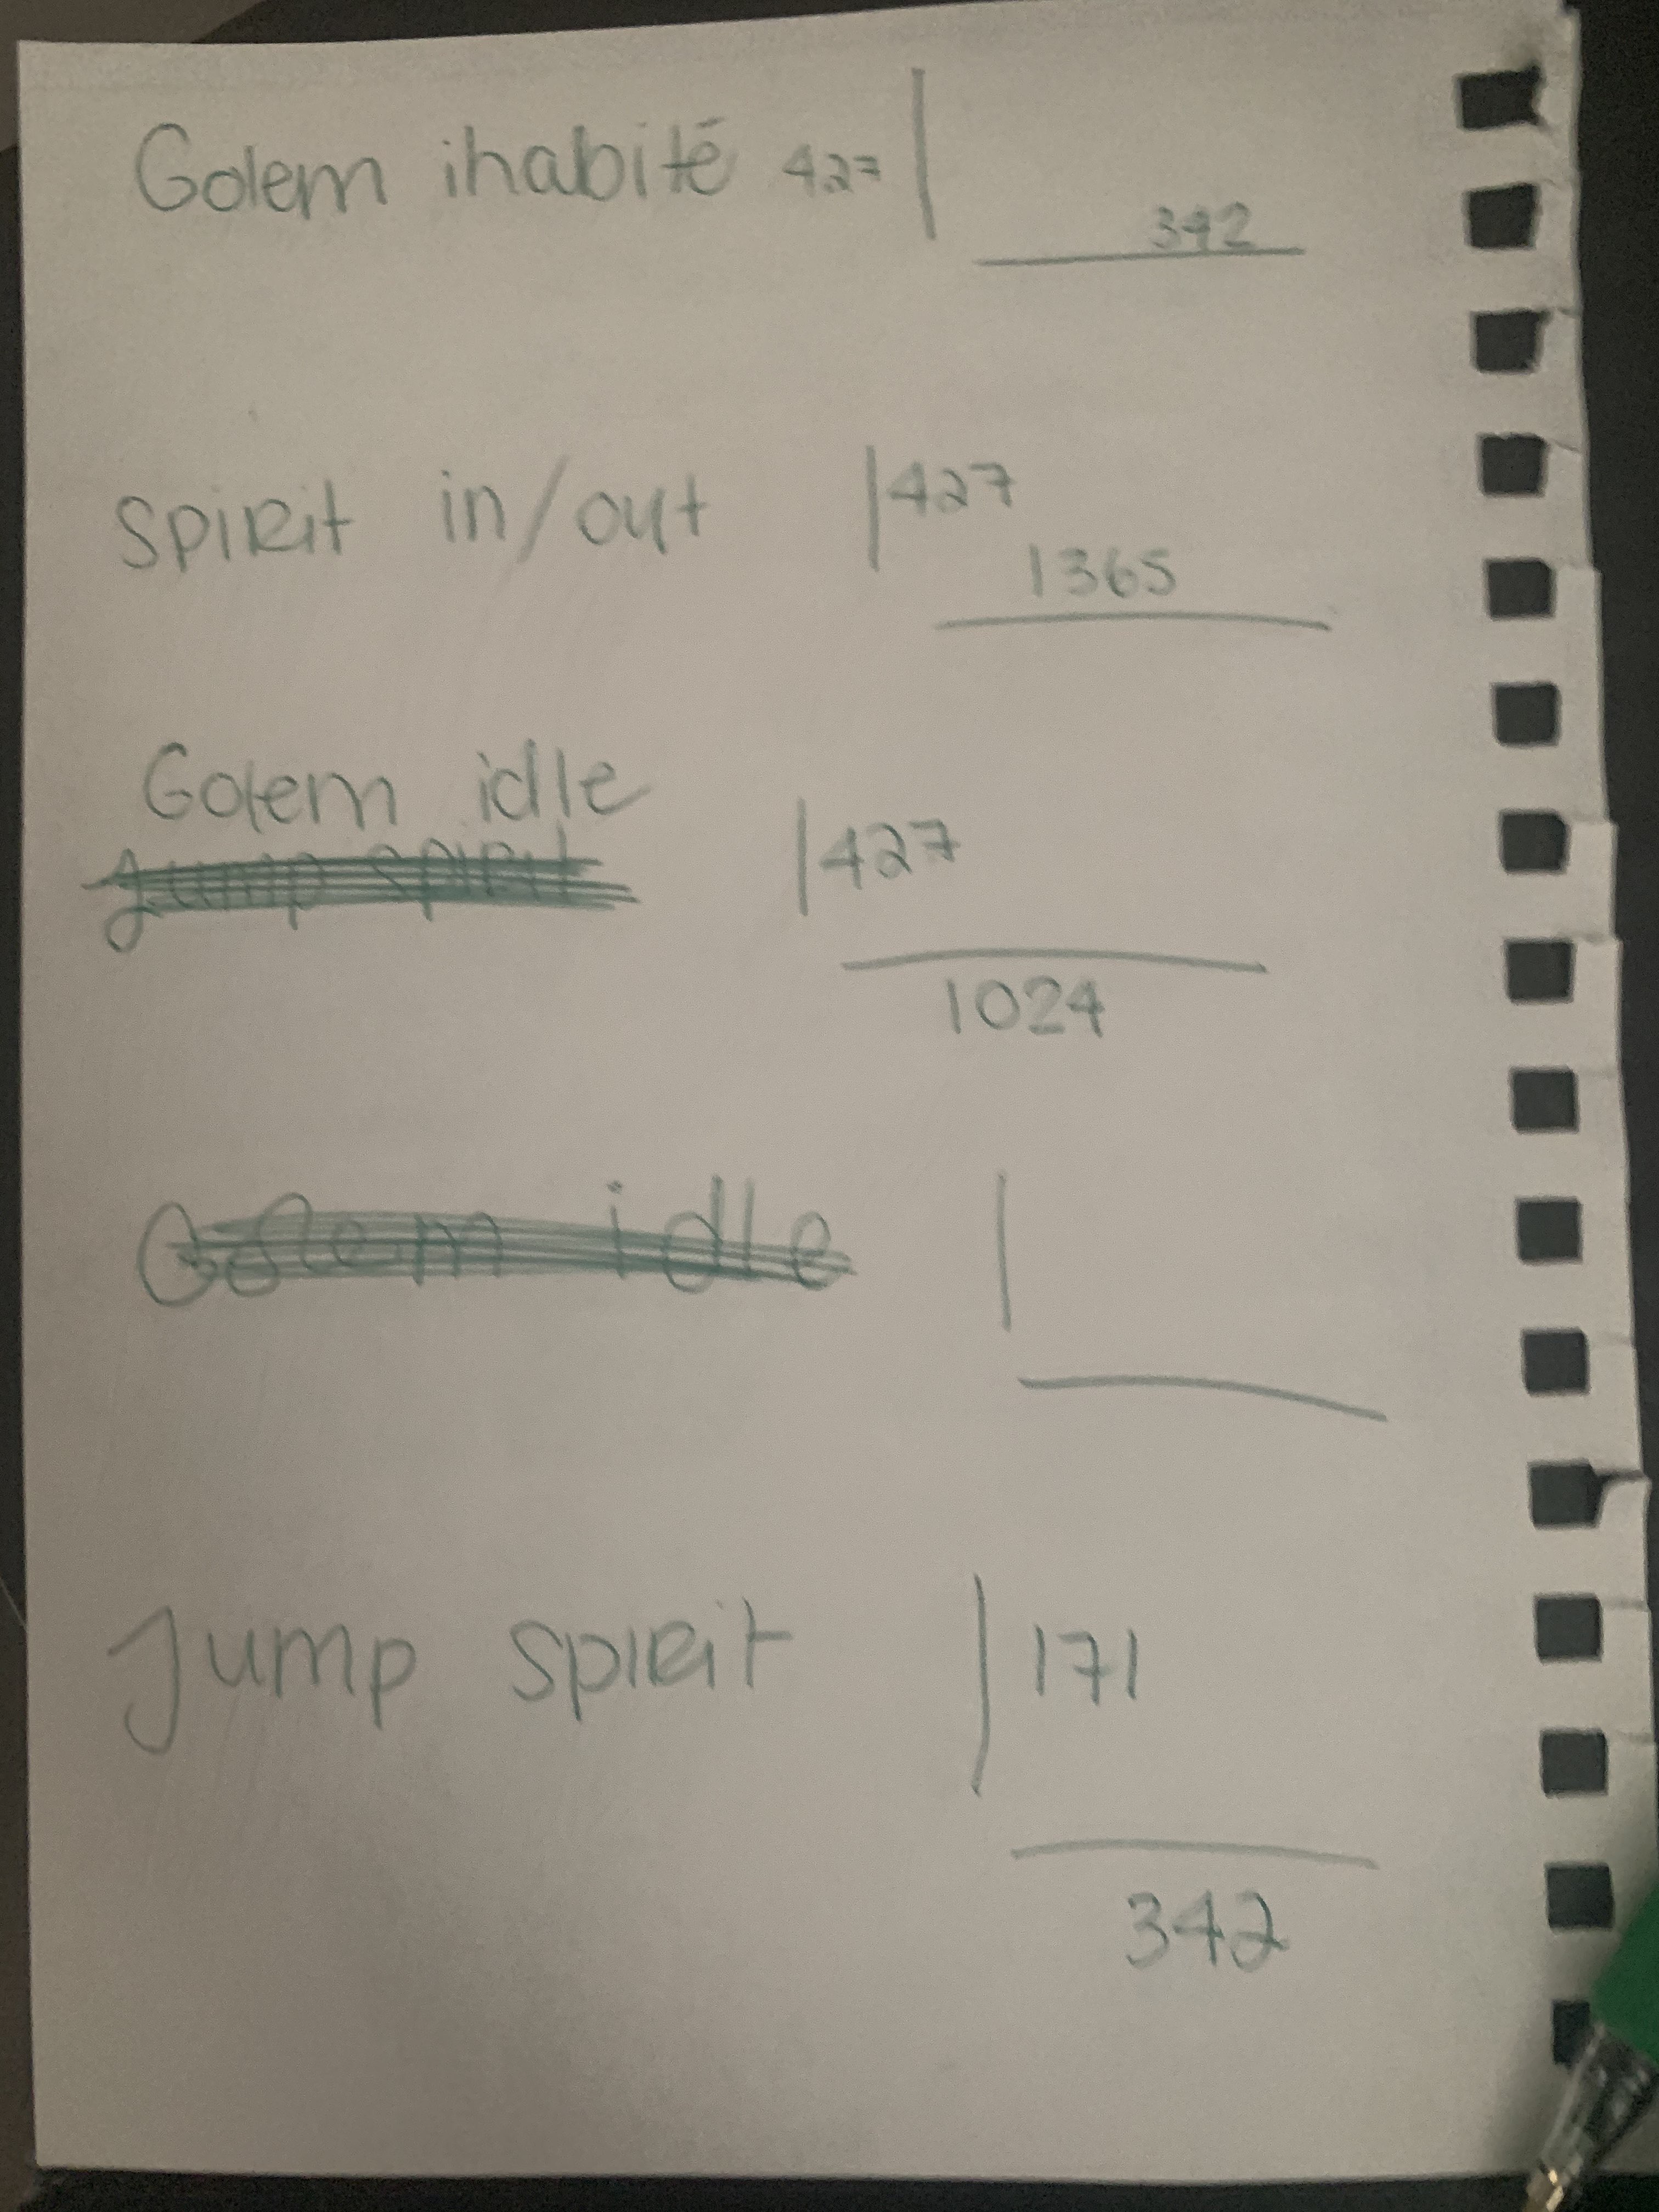 Golem ihabité 427
342
Spirit in/out 427
1365
Golem idle
Jump spirit
427
1024
Golem idle
Jump spirit 171
342